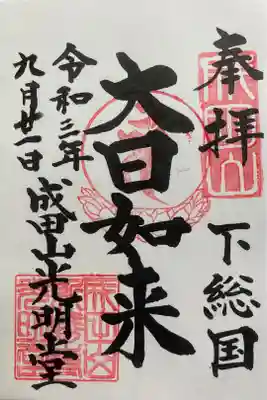 奉拝
下総国
大日如来
成田山光明堂
令和三年
九月廿一日